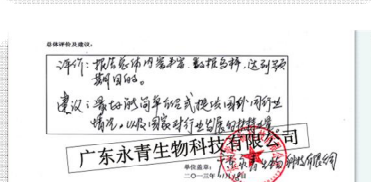 总体评价及建议:
评价：报告总体内容丰富、数据多样、达到预
期目的。
建议：最好能简单的形式提供国外同行业
情况，以及国家对行业发展的
广东永青生物科技有限公司
单位盖章：
二〇一三年